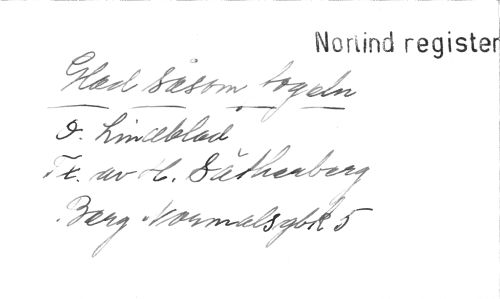 Norlind register
Glad såsom fogeln
O. Lindblad
Tx. av H. Sätherberg
Berg. Normalsgbk 5